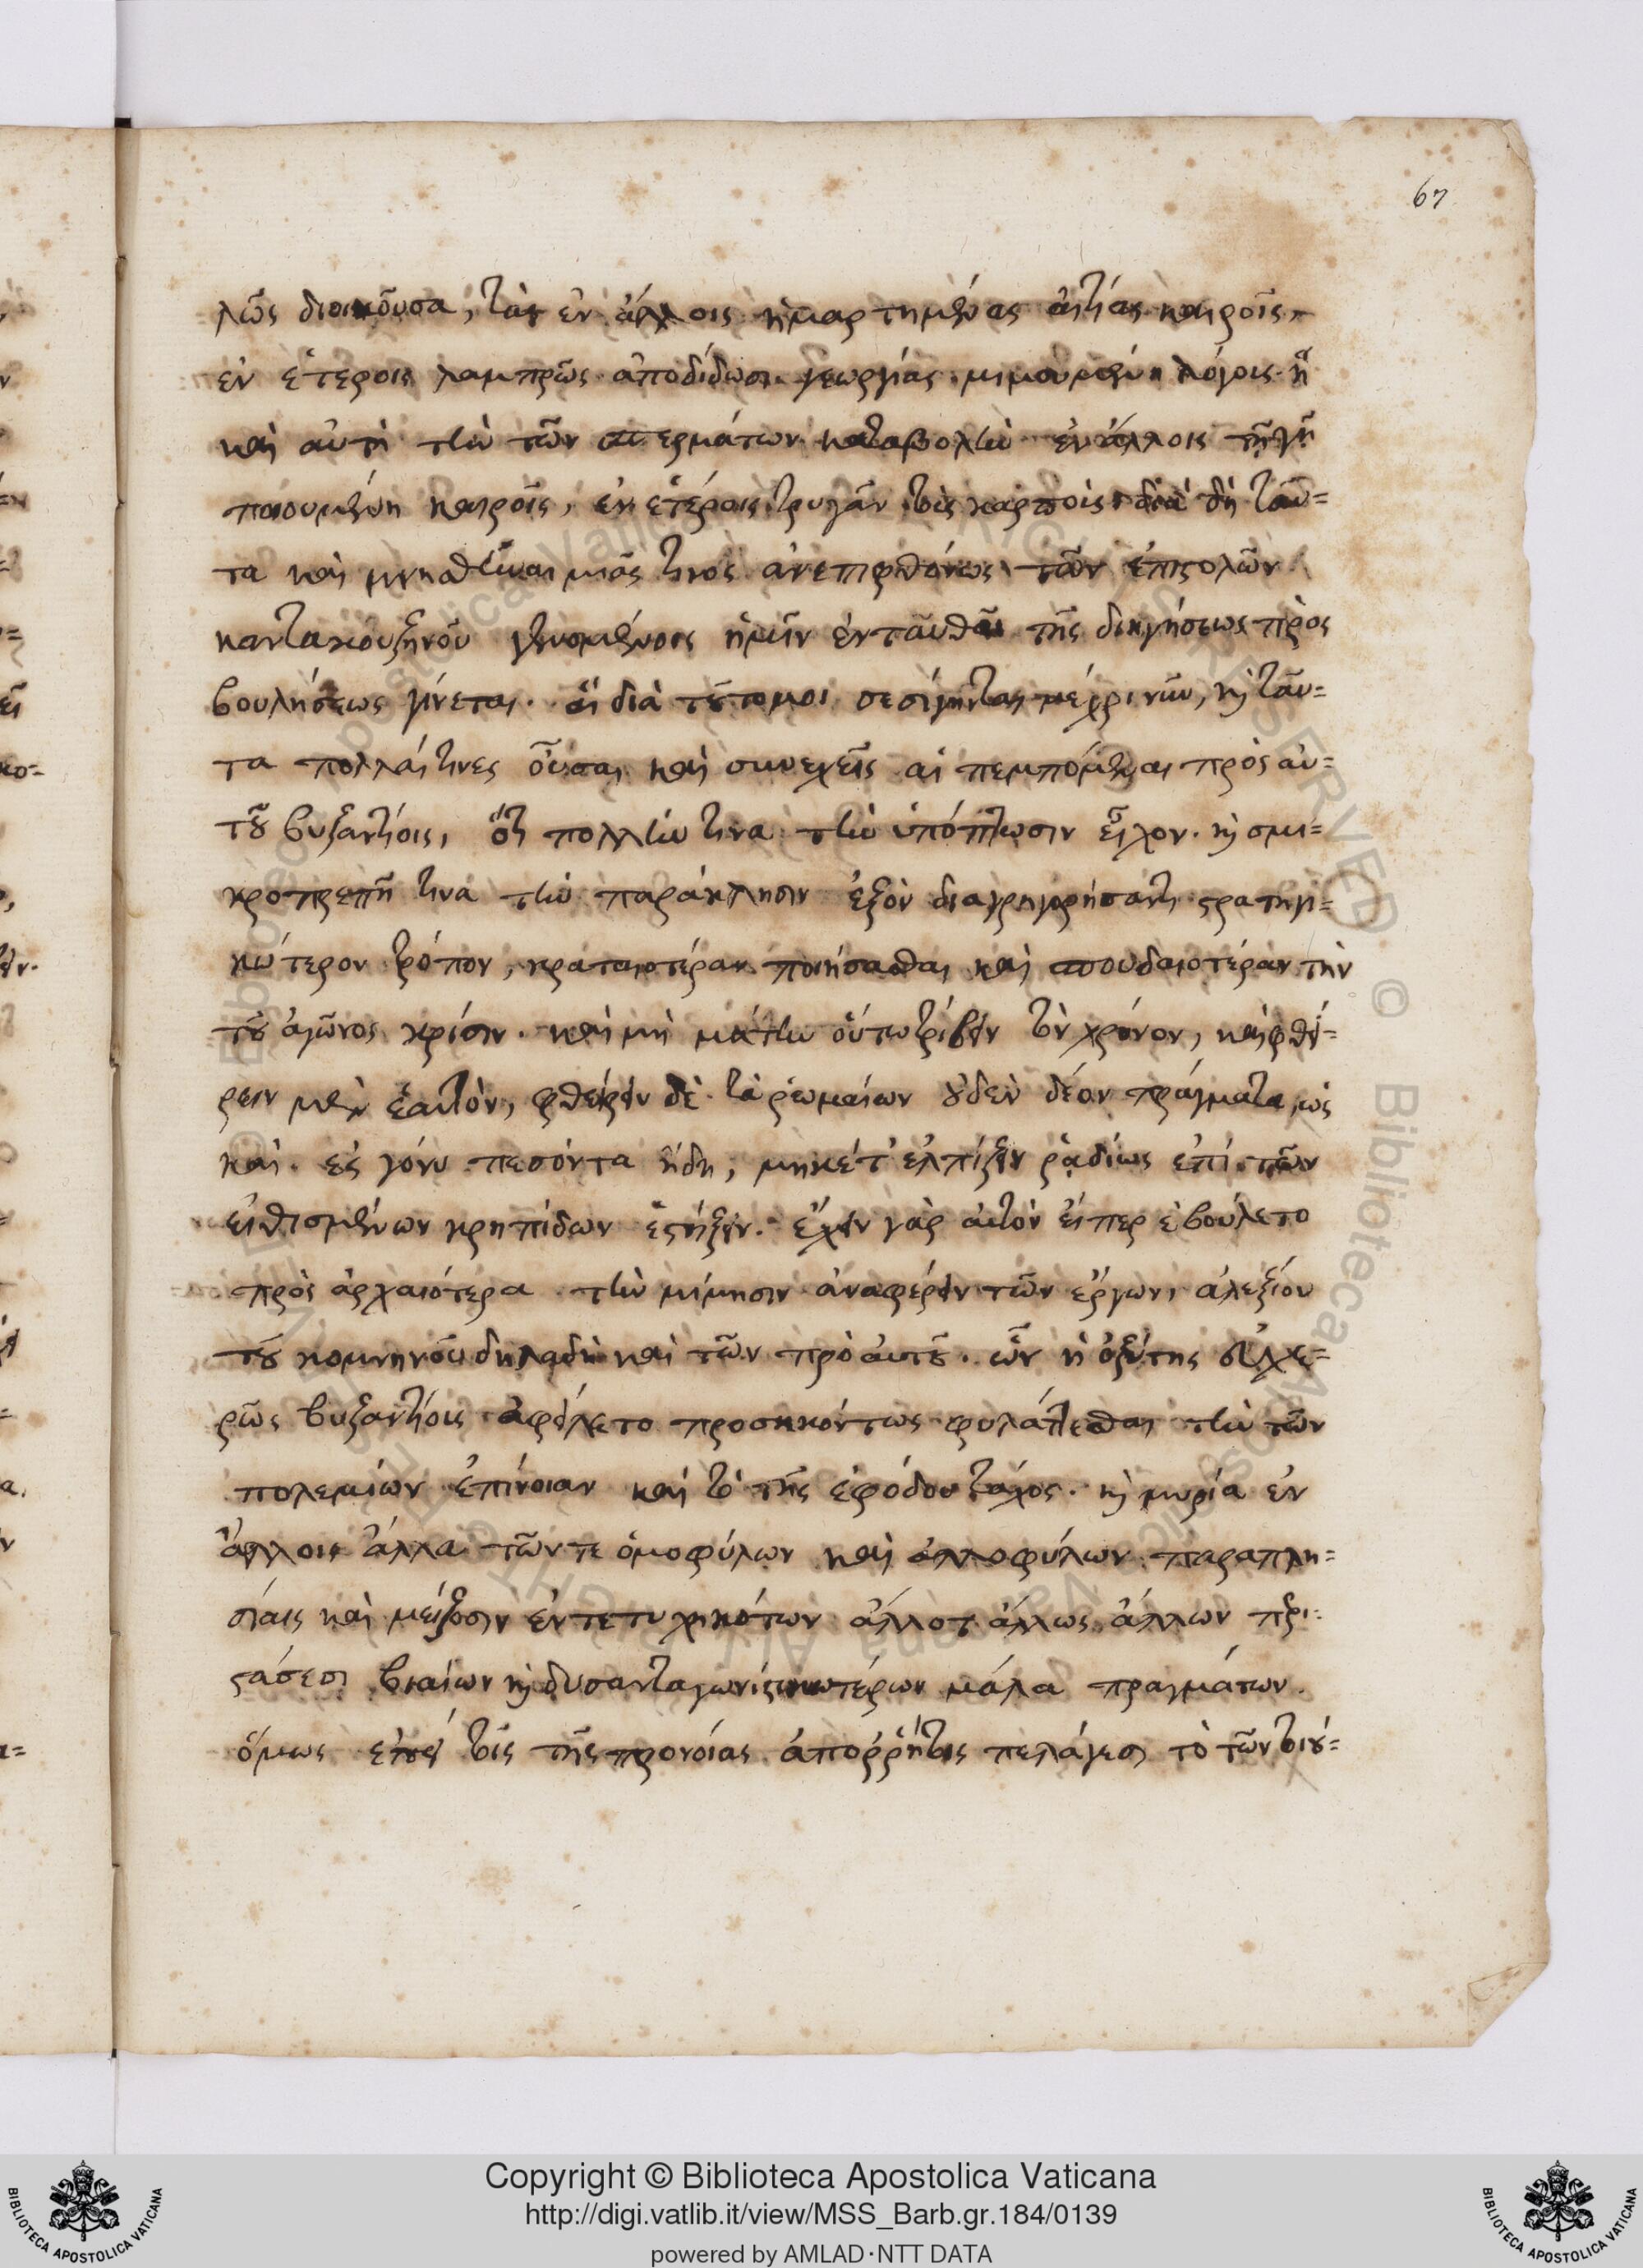 67
λῶς διοικοῦσα, τὰς ἐν ἄλλοις ἡμαρτημένας αἰτίας καιροῖς,
ἐν ἑτέροις λαμπρῶς ἀποδίδωσι γεωργίας μιμουμένη λόγοις. ἢ
καὶ αὐτὴ τὴν τῶν σπερμάτων καταβολὴν ἐν ἄλλοις τῇ γῇ
ποιουμένη καιροῖς, ἐν ἑτέροις τρυγᾶν τοὺς καρποὺς. διὰ δὴ ταῦ=
τα καὶ μνησθῆναι μιᾶς τινὸς ἀνεπιφθόνως τῶν ἐπιστολῶν
καντακουζηνοῦ γενομένοις ἡμῖν ἐνταῦθα τῆς διηγήσεως πρὸς
βουλήσεως γίνεται. αἳ διὰ τοῦτο μοι σεσίγηνται μέχρι νῦν, καὶ ταῦ=
τα πολλαί τινες οὖσαι καὶ συνεχεῖς αἱ πεμπόμεναι πρὸς αὐ=
τοῦ βυζαντίοις, ὅτι πολλήν τινα τὴν ὑπόπτωσιν εἶχον. καὶ σμι=
κροπρεπῆ τινα τὴν παράκλησιν ἐξὸν διαγρηγορήσαντι στρατηγι=
κώτερον τρόπον, κραταιοτέραν ποιήσασθαι καὶ σπουδαιοτέραν τὴν
τοῦ ἀγῶνος κρίσιν. καὶ μὴ μάτην οὕτω τρίβειν τὸν χρόνον, καὶ φθεί=
ρειν μὲν ἑαυτὸν, φθείρειν δὲ τὰ ῥωμαίων οὐδὲν δέον πράγματα, ὡς
καὶ ἐς γόνυ πεσόντα ἤδη, μηκέτ' ἐλπίζειν ῥᾳδίως ἐπὶ τῶν
εἰθισμένων κρηπίδων ἑστήξειν. ἔχειν γὰρ αὐτὸν εἴπερ ἐβούλετο
πρὸς ἀρχαιότερα τὴν μίμησιν ἀναφέρειν τῶν ἔργων, ἀλεξίου
τοῦ κομνηνοῦ δηλαδὴ καὶ τῶν πρὸ αὐτοῦ. ὧν ἡ ὀξύτης εὐχε=
ρῶς βυζαντίοις ἀφείλετο προσηκόντως φυλάττεσθαι τὴν τῶν
πολεμίων ἐπίνοιαν καὶ τὸ τῆς ἐφόδου τάχος. καὶ μυρία ἐν
ἄλλοις ἄλλα τῶν τε ὁμοφύλων καὶ ἀλλοφύλων παραπλη=
σίαις καὶ μείζοσιν ἐντετυχηκότων ἄλλοτ' ἄλλως ἄλλων περι=
στάσεσι βιαίων καὶ δυσανταγωνιστικωτέρων μάλα πραγμάτων.
ὅμως ἐπεὶ τοῖς τῆς προνοίας ἀπορρήτοις πελάγεσι τὸ τῶν τοιού=
Copyright © Biblioteca Apostolica Vaticana
http://digi.vatlib.it/view/MSS_Barb.gr.184/0139
powered by AMLAD·NTT DATA
BIBLIOTECA APOSTOLICA VATICANA
BIBLIOTECA APOSTOLICA VATICANA